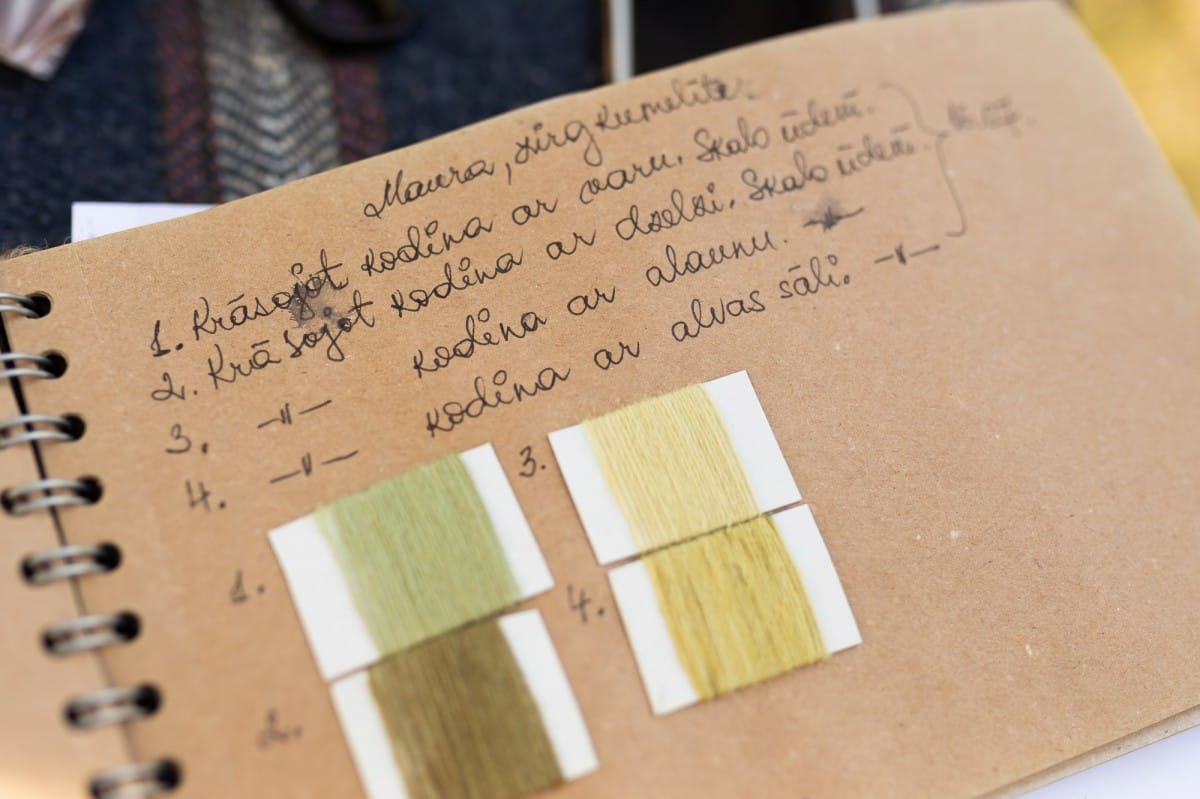 Maura, zirgkumelīte.
1. Krāsojot kodina ar varu. Skalo ūdenī.
2. Krāsojot kodina ar dzelzi. Skalo ūdenī.
3. –〃– kodina ar alaunu. –〃–
4. –〃– kodina ar alvas sāli. –〃–
3.
1.
4.
2.